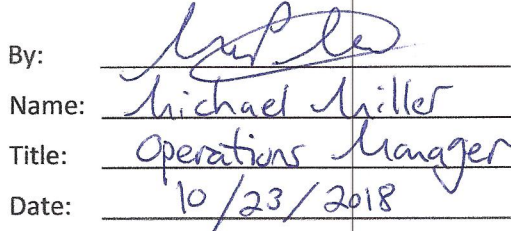 By:
Name: Michael Miller
Title: Operations Manager
Date: 10/23/2018